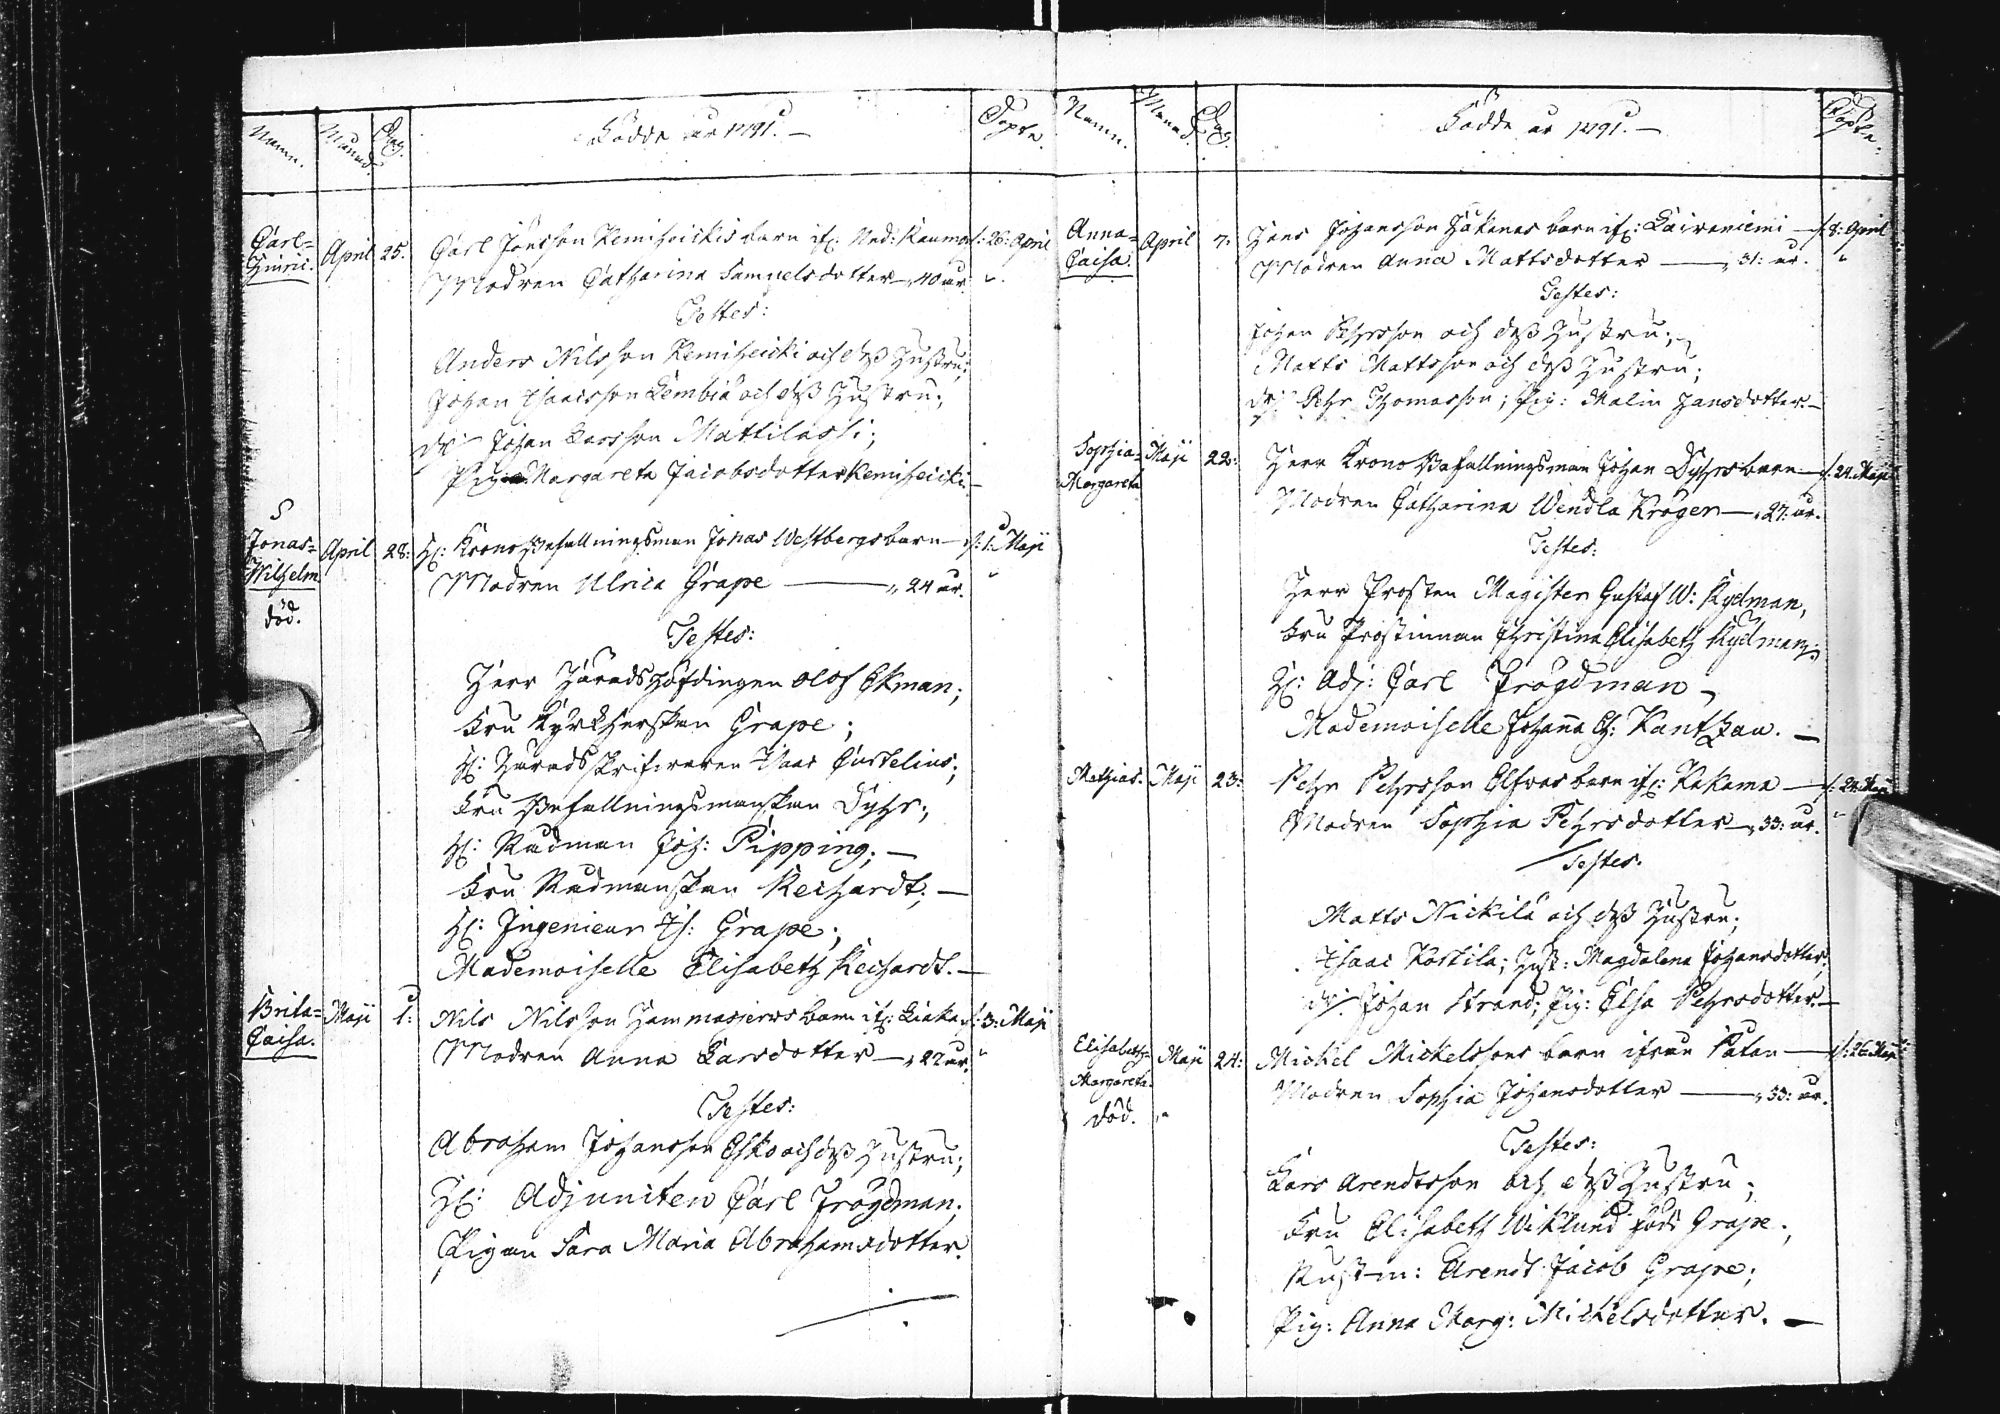 Namn. Månad. Dag. Födde år 1791. — Döpte.
Carl= April 25. Carl Jönsson Kemiheickis barn ifr: Ned: Raumo d: 26: April
Hinric. Modren Catharina Samuelsdotter — „ 40 år. „
Testes:
Anders Nilsson Kemiheicki och dess Hustru;
Johan Isaacsson Lembiä och dess Hustru;
Dr: Johan Larsson Mattilasti;
Pig: Margareta Jacobsdotter Kemiheicki. —
Jonas= April 28: H: Krono Befallningsman Jonas Westbergs barn — d: 1: Maji
Wilhelm Modren Ulrica Grape — „ 24 år. „
död.
Testes:
Herr Häradshöfdingen Olof Ekman;
Fru Kyrkherskan Grape;
H: Häradsskrifvaren Isaac Curtelius;
Fru Befallningsmanskan Dyhr;
H: Rådman Joh: Pipping; —
Fru Rådmanskan Reichardt; —
H: Ingenieur Is: Grape;
Mademoiselle Elisabeth Reichardt. —
Brita= Maji 1: Nils Nilsson Hammasjerws barn ifr: Liaka d: 3: Maji
Caisa. Modren Anna Larsdotter — „ 22 år. „
Testes:
Abraham Johansson Esko och dess Hustru;
H: Adjuncten Carl Frögdman;
Pigan Sara Maria Abrahamsdotter.
Namn. Månad. Dag. Födde år 1791. — Döpte.
Anna= April 7: Hans Johansson Häkanes barn ifr: Laivaniemi — d: 8: April
Caisa. Modren Anna Mattsdotter — „ 31: år. „
Testes:
Johan Pehrsson och dess Hustru;
Matts Mattsson och dess Hustru;
Dr: Pehr Thomasson; Pig: Malin Hansdotter. —
Sophia= Maji 22: Herr Krono Befallningsman Johan Dyhrs barn — d: 24. Maji
Margareta Modren Catharina Wendla Kröger — „ 27. år.
Testes:
Herr Prosten Magister Gustaf W: Rydman,
Fru Prostinnan Christina Elisabeth Rydman;
H: Adj: Carl Frögdman,
Mademoiselle Johanna Ch: Kantzau. —
Mathias. Maji 23: Pehr Pehrsson Elfvas barn ifr: Kakama — d: 24. Maji
Modren Sophia Pehrsdotter — „ 33: år. „
Testes:
Matts Nickilä och dess Hustru;
Isaac Kortila; Hust: Magdalena Johansdotter;
Dr: Johan Strand; Pig: Elsa Pehrsdotter. —
Elisabeth Maji 24: Mickel Mickelssons barn ifrån Patan — d: 26. Maji
Margareta. Modren Sophia Johansdotter — „ 33: år.
död. „
Testes:
Lars Arendtsson och dess Hustru;
Fru Elisabeth Wiklund född Grape;
Rustm: Arendt Jacob Grape;
Pig: Anna Marg: Mickelsdotter. —